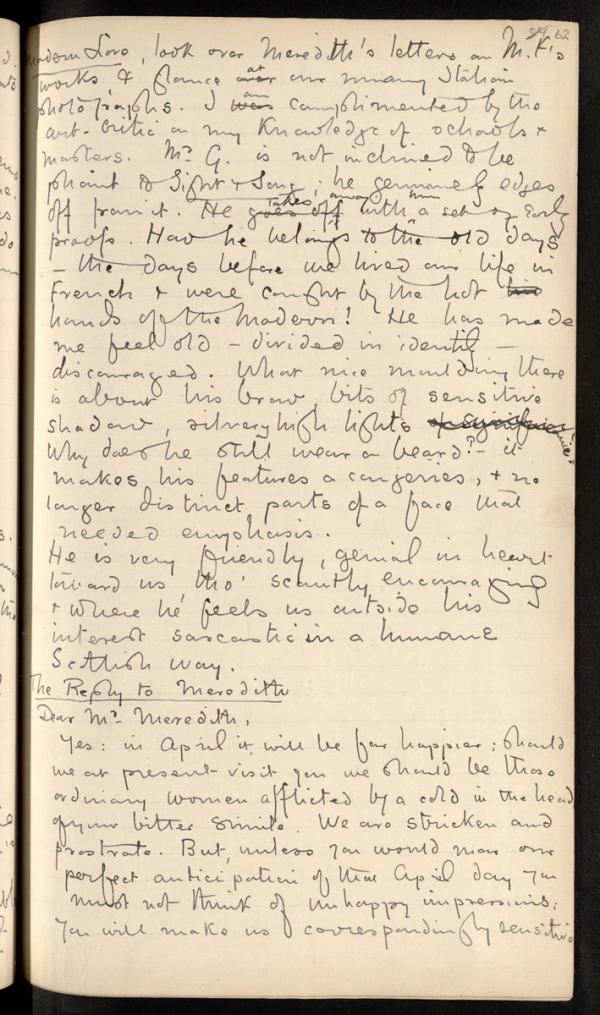 62
Modern Love, look over Meredith's letters on M.F's
works & glance over at our many Italian
photographs. I was am complimented by the
art-critic on my knowledge of schools &
masters. Mr G. is not inclined to be
pliant to Sight & Song; he genuinely edges
off from it. He goes off takes away with him a set of Early
proofs. How he belongs to the old days
– the days before we lived our life in
French & were caught by the hot
hands of the Modern! He has made
me feel old – divided in identity –
discouraged. What nice moulding there
is about his brow, bits of sensitive
shadow, silvery high lights
Why does he still wear a beard? – it
makes his features a congeries, & no
longer distinct parts of a face that
needed emphasis.
He is very friendly, genial in heart
toward us tho' scantly encouraging
& where he feels us outside his
interest sarcastic in a humane
Scottish way.
The Reply to Meredith
Dear Mr Meredith,
Yes: in April it will be far happier; should
we at present visit you we should be those
ordinary women afflicted by a cold in the head
of your bitter simile. We are stricken and
prostrate. But, unless you would mar our
perfect anticipation of that April day you
must not think of unhappy impressions;
You will make us correspondingly sensitive